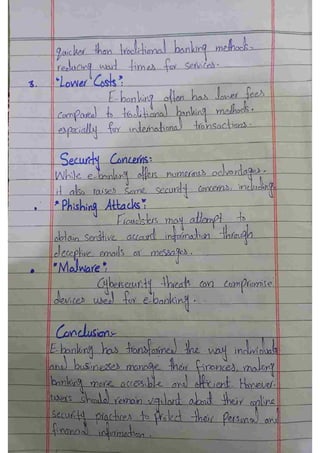 quicker than traditional banking methods.
reducing wait times for services.
3. "Lower Costs":
E-banking often has lower fees
compared to traditional banking methods.
especially for international transactions.
Security Concerns:
While e-banking offers numerous advantages.
it also raises some security concerns, including
• "Phishing Attacks":
Fraudsters may attempt to
obtain sensitive account information through
deceptive emails or messages.
• "Malware":
Cybersecurity threats can compromise
devices used for e-banking.
Conclusion:-
E-banking has transformed the way individuals
and businesses manage their finances, making
banking more accessible and efficient. However.
users should remain vigilant about their online
security practices to protect their personal and
financial information.